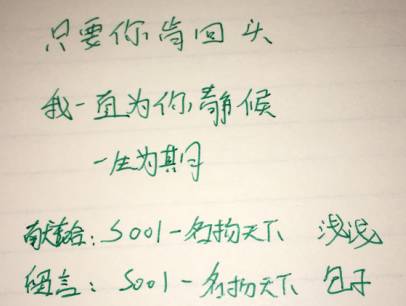 只要你肯回头
我一直为你静候
一生为其月
献给：5001-名扬天下 浅浅
留言：5001-名扬天下 包子